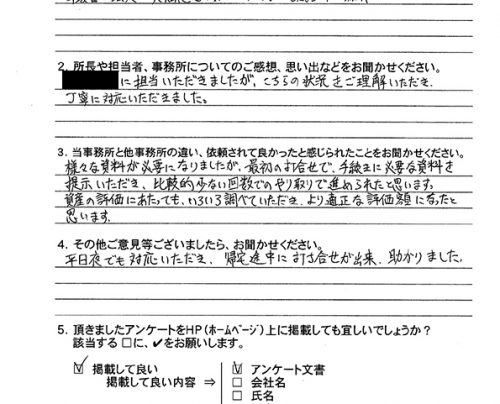 2. 所長や担当者、事務所についてのご感想、思い出などをお聞かせください。
に担当いただきましたが、こちらの状況をご理解いただき、
丁寧に対応いただきました。
3. 当事務所と他事務所の違い、依頼されて良かったと感じられたことをお聞かせください。
様々な資料が必要になりましたが、最初のお打合せで、手続きに必要な資料を
提示いただき、比較的少ない回数でのやり取りで進められたと思います。
資産の評価にあたっても、いろいろ調べていただき、より適正な評価額になったと
思います。
4. その他ご意見等ございましたら、お聞かせください。
平日夜でも対応いただき、帰宅途中に打合せが出来、助かりました。
5. 頂きましたアンケートをHP(ホームページ)上に掲載しても宜しいでしょうか?
該当する □に、✓をお願いします。
☑ 掲載して良い
掲載して良い内容 ⇒
☑ アンケート文書
□ 会社名
□ 氏名